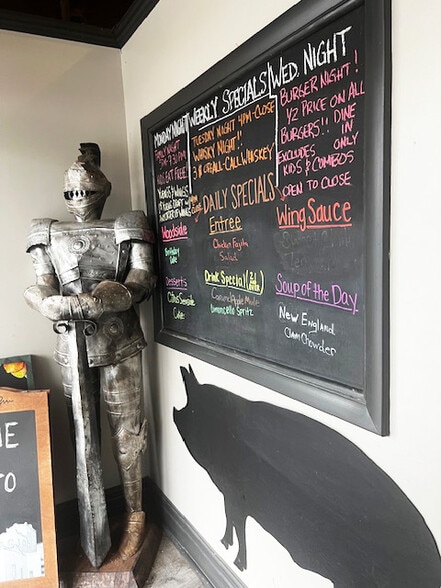 MONDAY NIGHT
WEEKLY SPECIALS
WED. NIGHT
FAMILY NIGHT
5PM-9:30PM
KIDS EAT FREE!
TUESDAY NIGHT 4PM-CLOSE
WHISKY NIGHT!!
3 $ OFF ALL-CALL WHISKEY
BURGER NIGHT!
1/2 PRICE ON ALL
BURGERS!! DINE
IN
EXCLUDES ONLY
KIDS & COMBOS
OPEN TO CLOSE
DAILY SPECIALS
Woodside
Entree
Chicken Fajita
Salad
Wing Sauce
Desserts
Cake
Drink Special
Caramel Apple Mule
Limoncello Spritz
Soup of the Day
New England
Clam Chowder